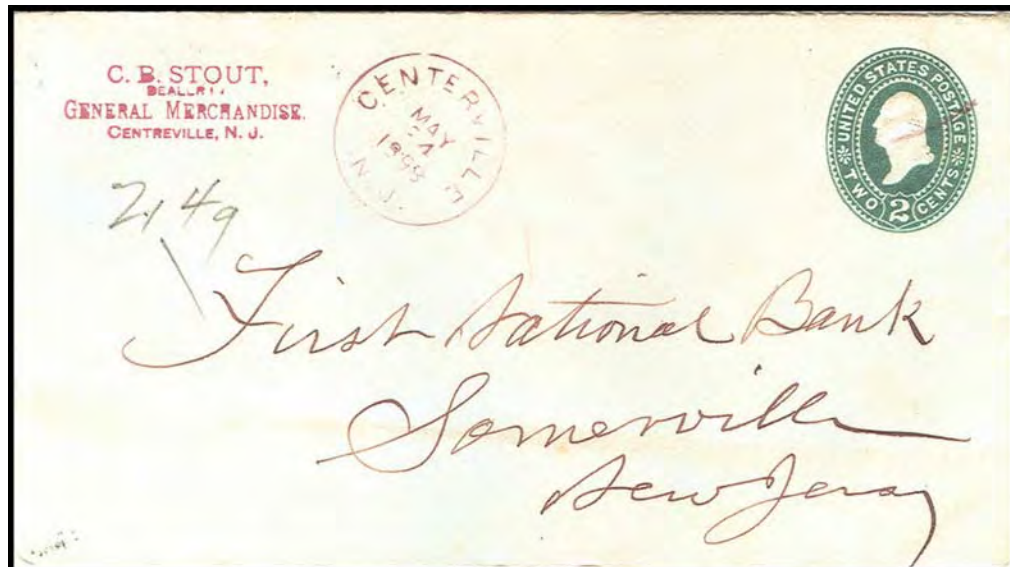 C. B. STOUT,
GENERAL MERCHANDISE.
CENTREVILLE, N. J.
CENTERVILLE
MAY
24
N. J.
UNITED STATES POSTAGE
TWO 2 CENTS
21 49
First National Bank
Somerville
New Jersey